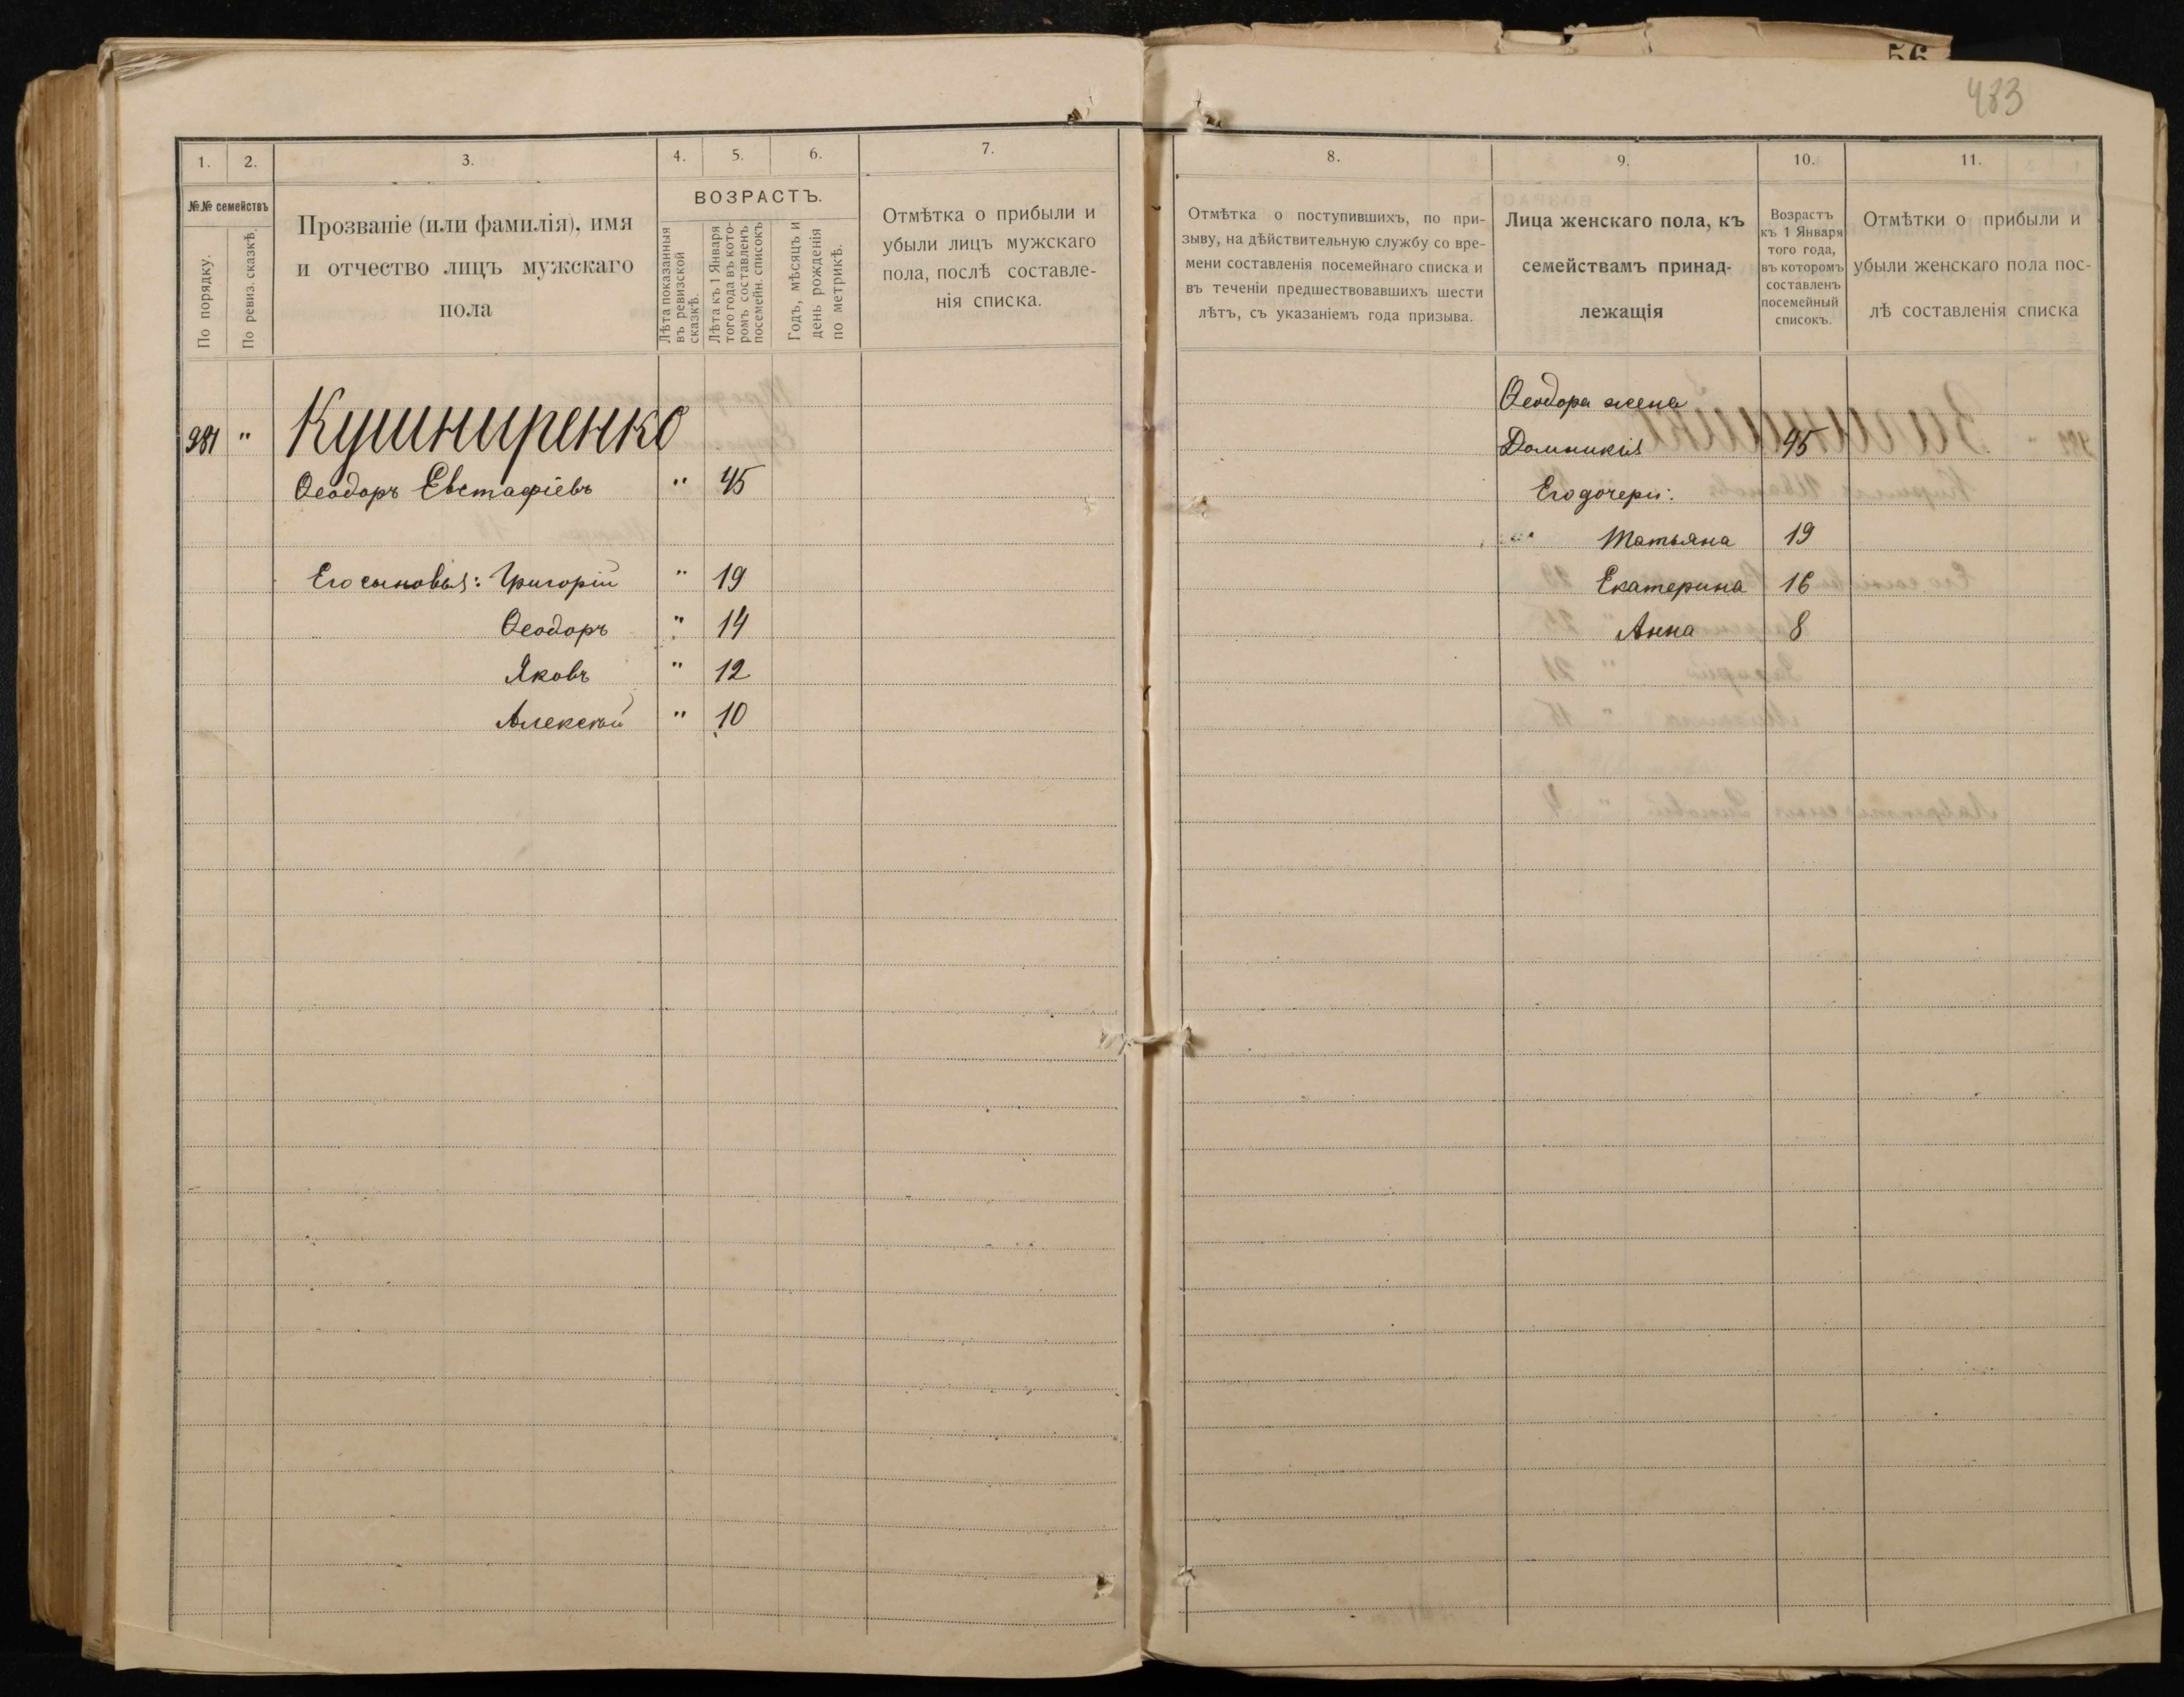 56
483
1. 2. 3. 4. 5. 6. 7.
№№ семействъ
По порядку.
По ревиз. сказкѣ
Прозваніе (или фамилія), имя
и отчество лицъ мужскаго
пола
ВОЗРАСТЪ.
Лѣта показанныя
въ ревизской
сказкѣ.
Лѣта къ 1 Января
того года въ кото-
ромъ составленъ
посемейн. списокъ
Годъ, мѣсяцъ и
день рожденія
по метрикѣ.
Отмѣтка о прибыли и
убыли лицъ мужскаго
пола, послѣ составле-
нія списка.
" Кушниренко
Ѳеодоръ Евстафіевъ " 45
Его сыновья: Григорій " 19
Ѳеодоръ " 14
Яковъ " 12
Алексѣй " 10
8. 9. 10. 11.
Отмѣтка о поступившихъ, по при-
зыву, на дѣйствительную службу со вре-
мени составленія посемейнаго списка и
въ теченіи предшествовавшихъ шести
лѣтъ, съ указаніемъ года призыва.
Лица женскаго пола, къ
семействамъ принад-
лежащія
Возрастъ
къ 1 Января
того года,
въ которомъ
составленъ
посемейный
списокъ.
Отмѣтки о прибыли и
убыли женскаго пола пос-
лѣ составленія списка
Ѳеодора жена
Домникія 45
Его дочери:
Татьяна 19
Екатерина 16
Анна 8